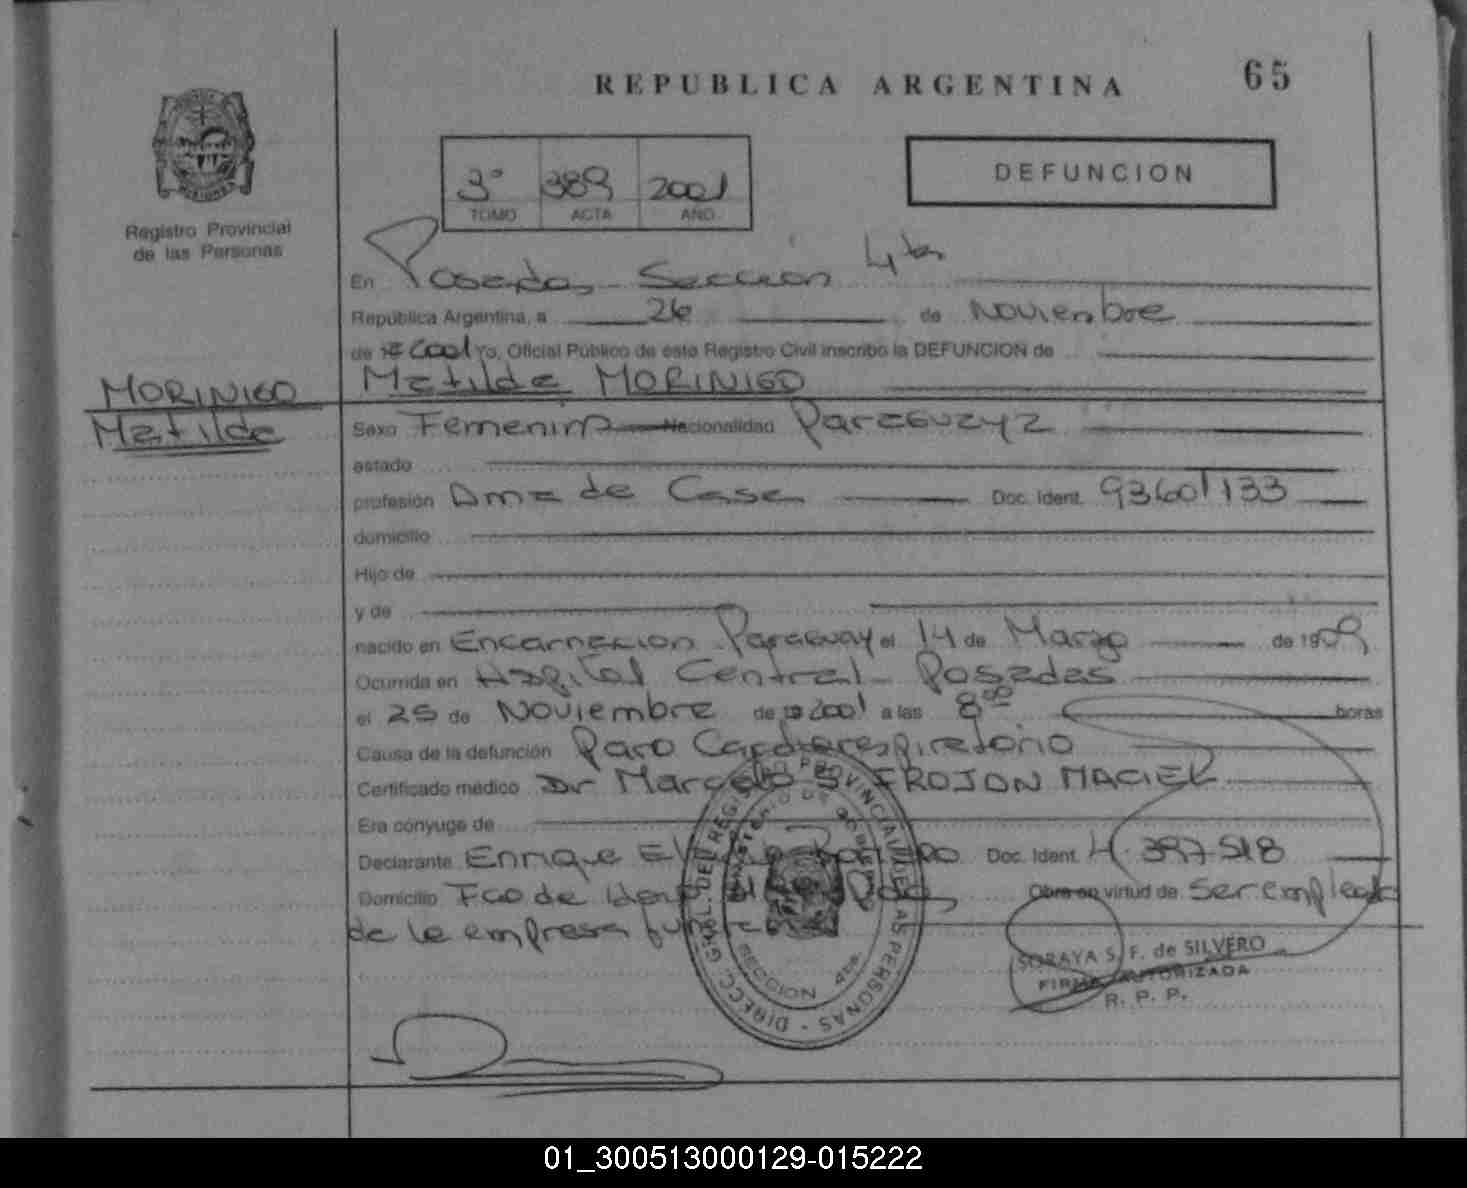 REPUBLICA ARGENTINA
65
3° 389 2001
TOMO ACTA AÑO
DEFUNCION
Registro Provincial
de las Personas
En Posadas Sección 4ta
República Argentina, a 26 de Noviembre
de 2001 Yo, Oficial Público de este Registro Civil inscribo la DEFUNCION de
MORINIGO
Matilde
Matilde MORINIGO
Sexo Femenino Nacionalidad Paraguaya
estado
profesión Ama de Casa Doc. Ident. 93601133
domicilio
Hijo de
y de
nacido en Encarnacion Paraguay el 14 de Marzo de 1909
Ocurrida en Hospital Central Posadas
el 25 de Noviembre de 2001 a las 8 00 horas
Causa de la defunción Paro Cardiorespiratorio
Certificado médico Dr Marcelo FROJON MACIEL
Era cónyuge de
Declarante Enrique Doc. Ident. 4.397518
Domicilio Fco de Pdas Obra en virtud de Ser empleado
de la empresa funebre
SORAYA S. F. de SILVERO
FIRMA AUTORIZADA
R. P. P.
DIRECC. GRAL. DEL REGISTRO PROVINCIAL DE LAS PERSONAS
MINISTERIO DE GOBIERNO
SECCION 4ta.
MISIONES
01_300513000129-015222